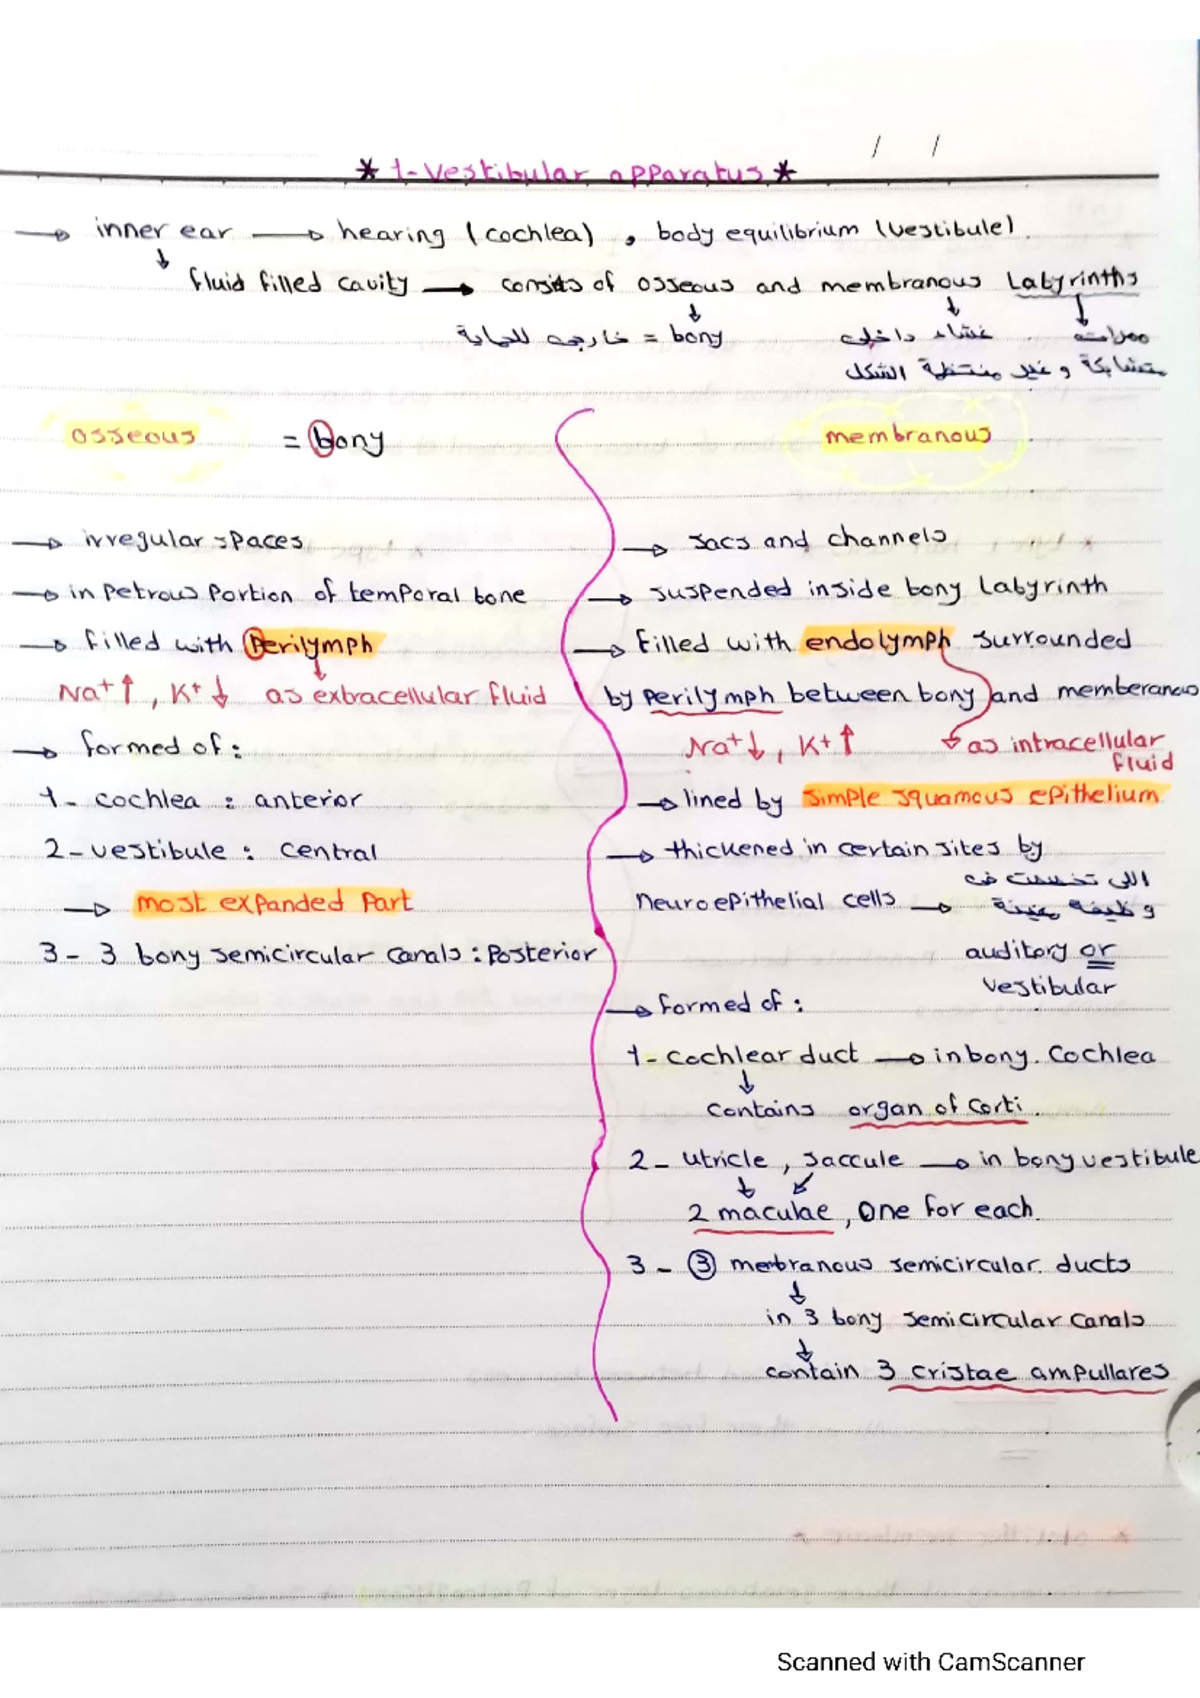 / /
* 1- Vestibular apparatus *
→ inner ear → hearing (cochlea) , body equilibrium (vestibule).
↓ fluid filled cavity → consists of osseous and membranous Labyrinths
↓ ↓ ↓
خارجه للحماية = bony غشاء داخلى ممرات
متشابكة وغير منتظمة الشكل
osseous = bony
→ irregular spaces
→ in petrous portion of temporal bone
→ filled with perilymph
Na+ ↑ , K+ ↓ as extracellular fluid
→ formed of :
1- cochlea : anterior
2- vestibule : central
→ most expanded part
3- 3 bony semicircular canals : posterior
membranous
→ sacs and channels
→ suspended inside bony Labyrinth
→ filled with endolymph surrounded
by perilymph between bony and memberanous
Na+ ↓ , K+ ↑ as intracellular
fluid
→ lined by simple squamous epithelium
→ thickened in certain sites by
neuroepithelial cells → اللى تخصصت فى
وظيفه معينة
auditory or
vestibular
→ formed of :
1- cochlear duct → in bony. cochlea
↓
contains organ of corti.
2- utricle , saccule → in bony vestibule
↓ ↙
2 maculae , one for each.
3- 3 membranous semicircular. ducts
↓
in 3 bony semicircular canals
↓
contain 3 cristae ampullares
Scanned with CamScanner